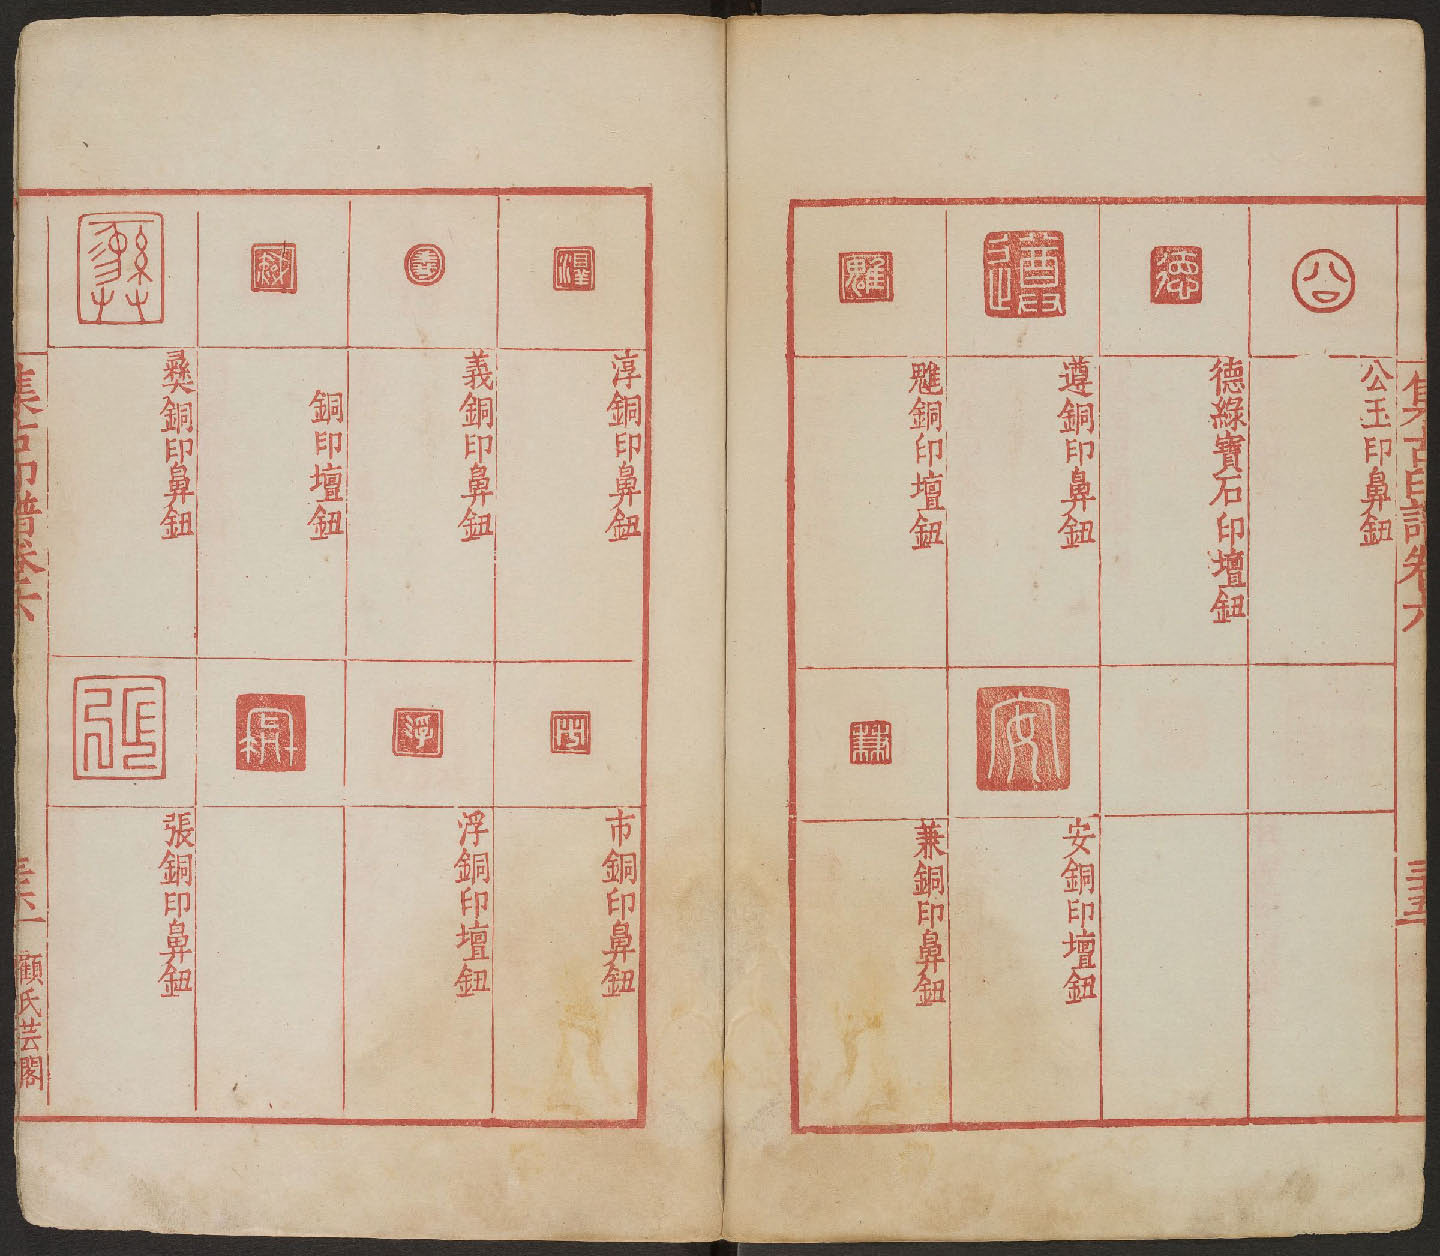 集古印譜卷六
三十五
公玉印鼻鈕
德綠寶石印壇鈕
遵銅印鼻鈕
雘銅印壇鈕
安銅印壇鈕
兼銅印鼻鈕
淳銅印鼻鈕
義銅印鼻鈕
銅印壇鈕
彝銅印鼻鈕
市銅印鼻鈕
浮銅印壇鈕
張銅印鼻鈕
集古印譜卷六
顧氏芸閣
公
德
安
義
浮
張